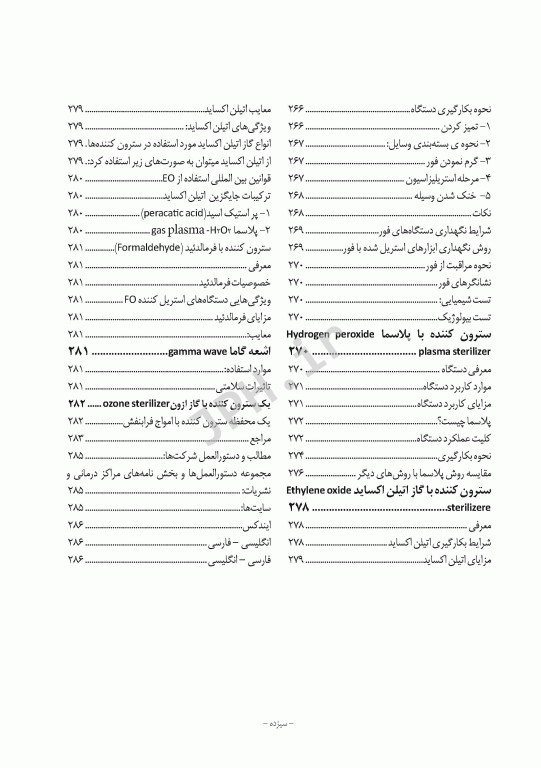 نحوه بکارگیری دستگاه ................ ۲۶۶
۱- تمیز کردن ................ ۲۶۶
۲- نحوه ی بسته‌بندی وسایل: ................ ۲۶۷
۳- گرم نمودن فور ................ ۲۶۷
۴- مرحله استریلیزاسیون ................ ۲۶۷
۵- خنک شدن وسیله ................ ۲۶۸
نکات ................ ۲۶۸
شرایط نگهداری دستگاه‌های فور ................ ۲۶۹
روش نگهداری ابزارهای استریل شده با فور ................ ۲۶۹
نحوه مراقبت از فور ................ ۲۷۰
نشانگرهای فور ................ ۲۷۰
تست شیمیایی: ................ ۲۷۰
تست بیولوژیک ................ ۲۷۰
سترون کننده با پلاسما Hydrogen peroxide
plasma sterilizer ................ ۲۷۰
معرفی دستگاه ................ ۲۷۰
موارد کاربرد دستگاه ................ ۲۷۱
مزایای کاربرد دستگاه ................ ۲۷۱
پلاسما چیست؟ ................ ۲۷۲
کلیت عملکرد دستگاه ................ ۲۷۲
نحوه بکارگیری ................ ۲۷۴
مقایسه روش پلاسما با روش‌های دیگر ................ ۲۷۶
سترون کننده با گاز اتیلن اکساید Ethylene oxide
sterilizere ................ ۲۷۸
معرفی ................ ۲۷۸
شرایط بکارگیری اتیلن اکساید ................ ۲۷۸
مزایای اتیلن اکساید ................ ۲۷۹
معایب اتیلن اکساید ................ ۲۷۹
ویژگی‌های اتیلن اکساید: ................ ۲۷۹
انواع گاز اتیلن اکساید مورد استفاده در سترون کننده‌ها. ۲۷۹
از اتیلن اکساید میتوان به صورت‌های زیر استفاده کرد:. ۲۷۹
قوانین بین المللی استفاده از EO ................ ۲۸۰
ترکیبات جایگزین اتیلن اکساید ................ ۲۸۰
۱- پر استیک اسید (peracatic acid) ................ ۲۸۰
۲- پلاسما gas plasma -H۲O۲ ................ ۲۸۰
سترون کننده با فرمالدئید (Formaldehyde) ................ ۲۸۱
معرفی ................ ۲۸۱
خصوصیات فرمالدئید ................ ۲۸۱
ویژگی‌هایی دستگاه‌های استریل کننده FO ................ ۲۸۱
مزایای فرمالدئید ................ ۲۸۱
معایب: ................ ۲۸۱
اشعه گاما gamma wave ................ ۲۸۱
موارد استفاده: ................ ۲۸۱
تاثیرات سلامتی ................ ۲۸۱
یک سترون کننده با گاز ازون ozone sterilizer ...... ۲۸۲
یک محفظه سترون کننده با امواج فرابنفش ................ ۲۸۲
مراجع ................ ۲۸۳
مطالب و دستورالعمل شرکت‌ها: ................ ۲۸۵
مجموعه دستورالعمل‌ها و بخش نامه‌های مراکز درمانی و
نشریات: ................ ۲۸۵
سایت‌ها: ................ ۲۸۵
ایندکس ................ ۲۸۶
انگلیسی - فارسی ................ ۲۸۶
فارسی - انگلیسی ................ ۲۸۶
JPH.ir
- سیزده -